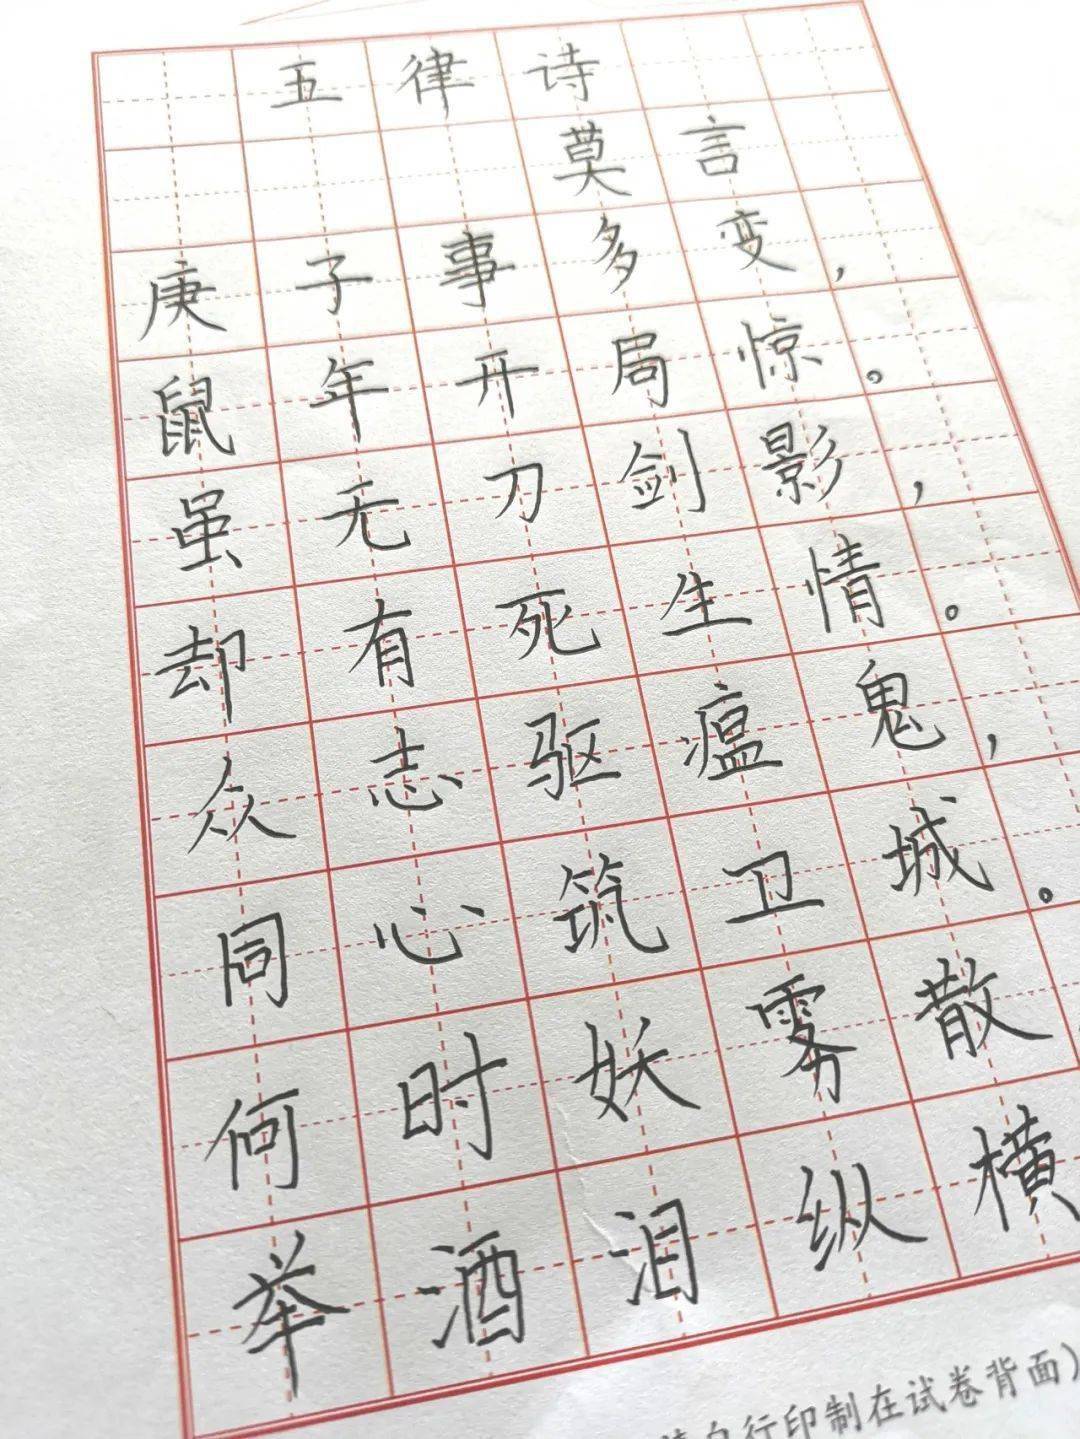 五律诗
莫言
庚子事多变，
鼠年开局惊。
虽无刀剑影，
却有死生情。
众志驱瘟鬼，
同心筑卫城。
何时妖雾散
举酒泪纵横
自行印制在试卷背面）